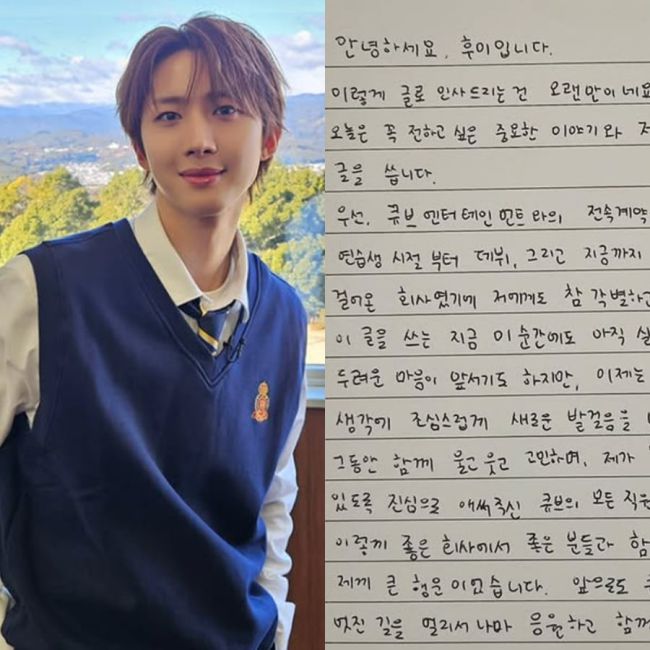 안녕하세요, 후이입니다.
이렇게 글로 인사드리는건 오랜만이네요
오늘은 꼭 전하고 싶은 중요한 이야기와
글을 씁니다.
우선, 큐브엔터테인먼트와의 전속계약
연습생 시절부터 데뷔, 그리고 지금까지
걸어온 회사였기에 저에게도 참 각별하고
이 글을 쓰는 지금 이순간에도 아직
두려운 마음이 앞서기도 하지만, 이제는
생각에 조심스럽게 새로운 발걸음을
그동안 함께 울고 웃고 고민하며, 제가
있도록 진심으로 애써주신 큐브의 모든 직원
이렇게 좋은 회사에서 좋은 분들과 함
제게 큰 행운이었습니다. 앞으로도
멋진 길을 멀리서나마 응원하고 함께